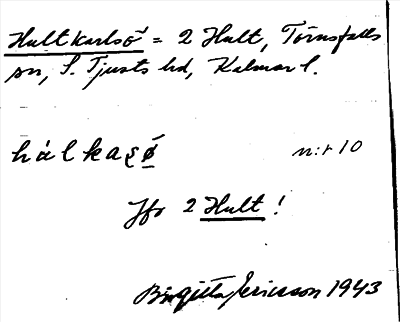 Hultkarlsö = 2 Hult, Törnsfalls
sn, S. Tjusts hd, Kalmar l.
hálkasǫ́ n:r 10
Jfr 2 Hult!
Birgitta Ericsson 1943